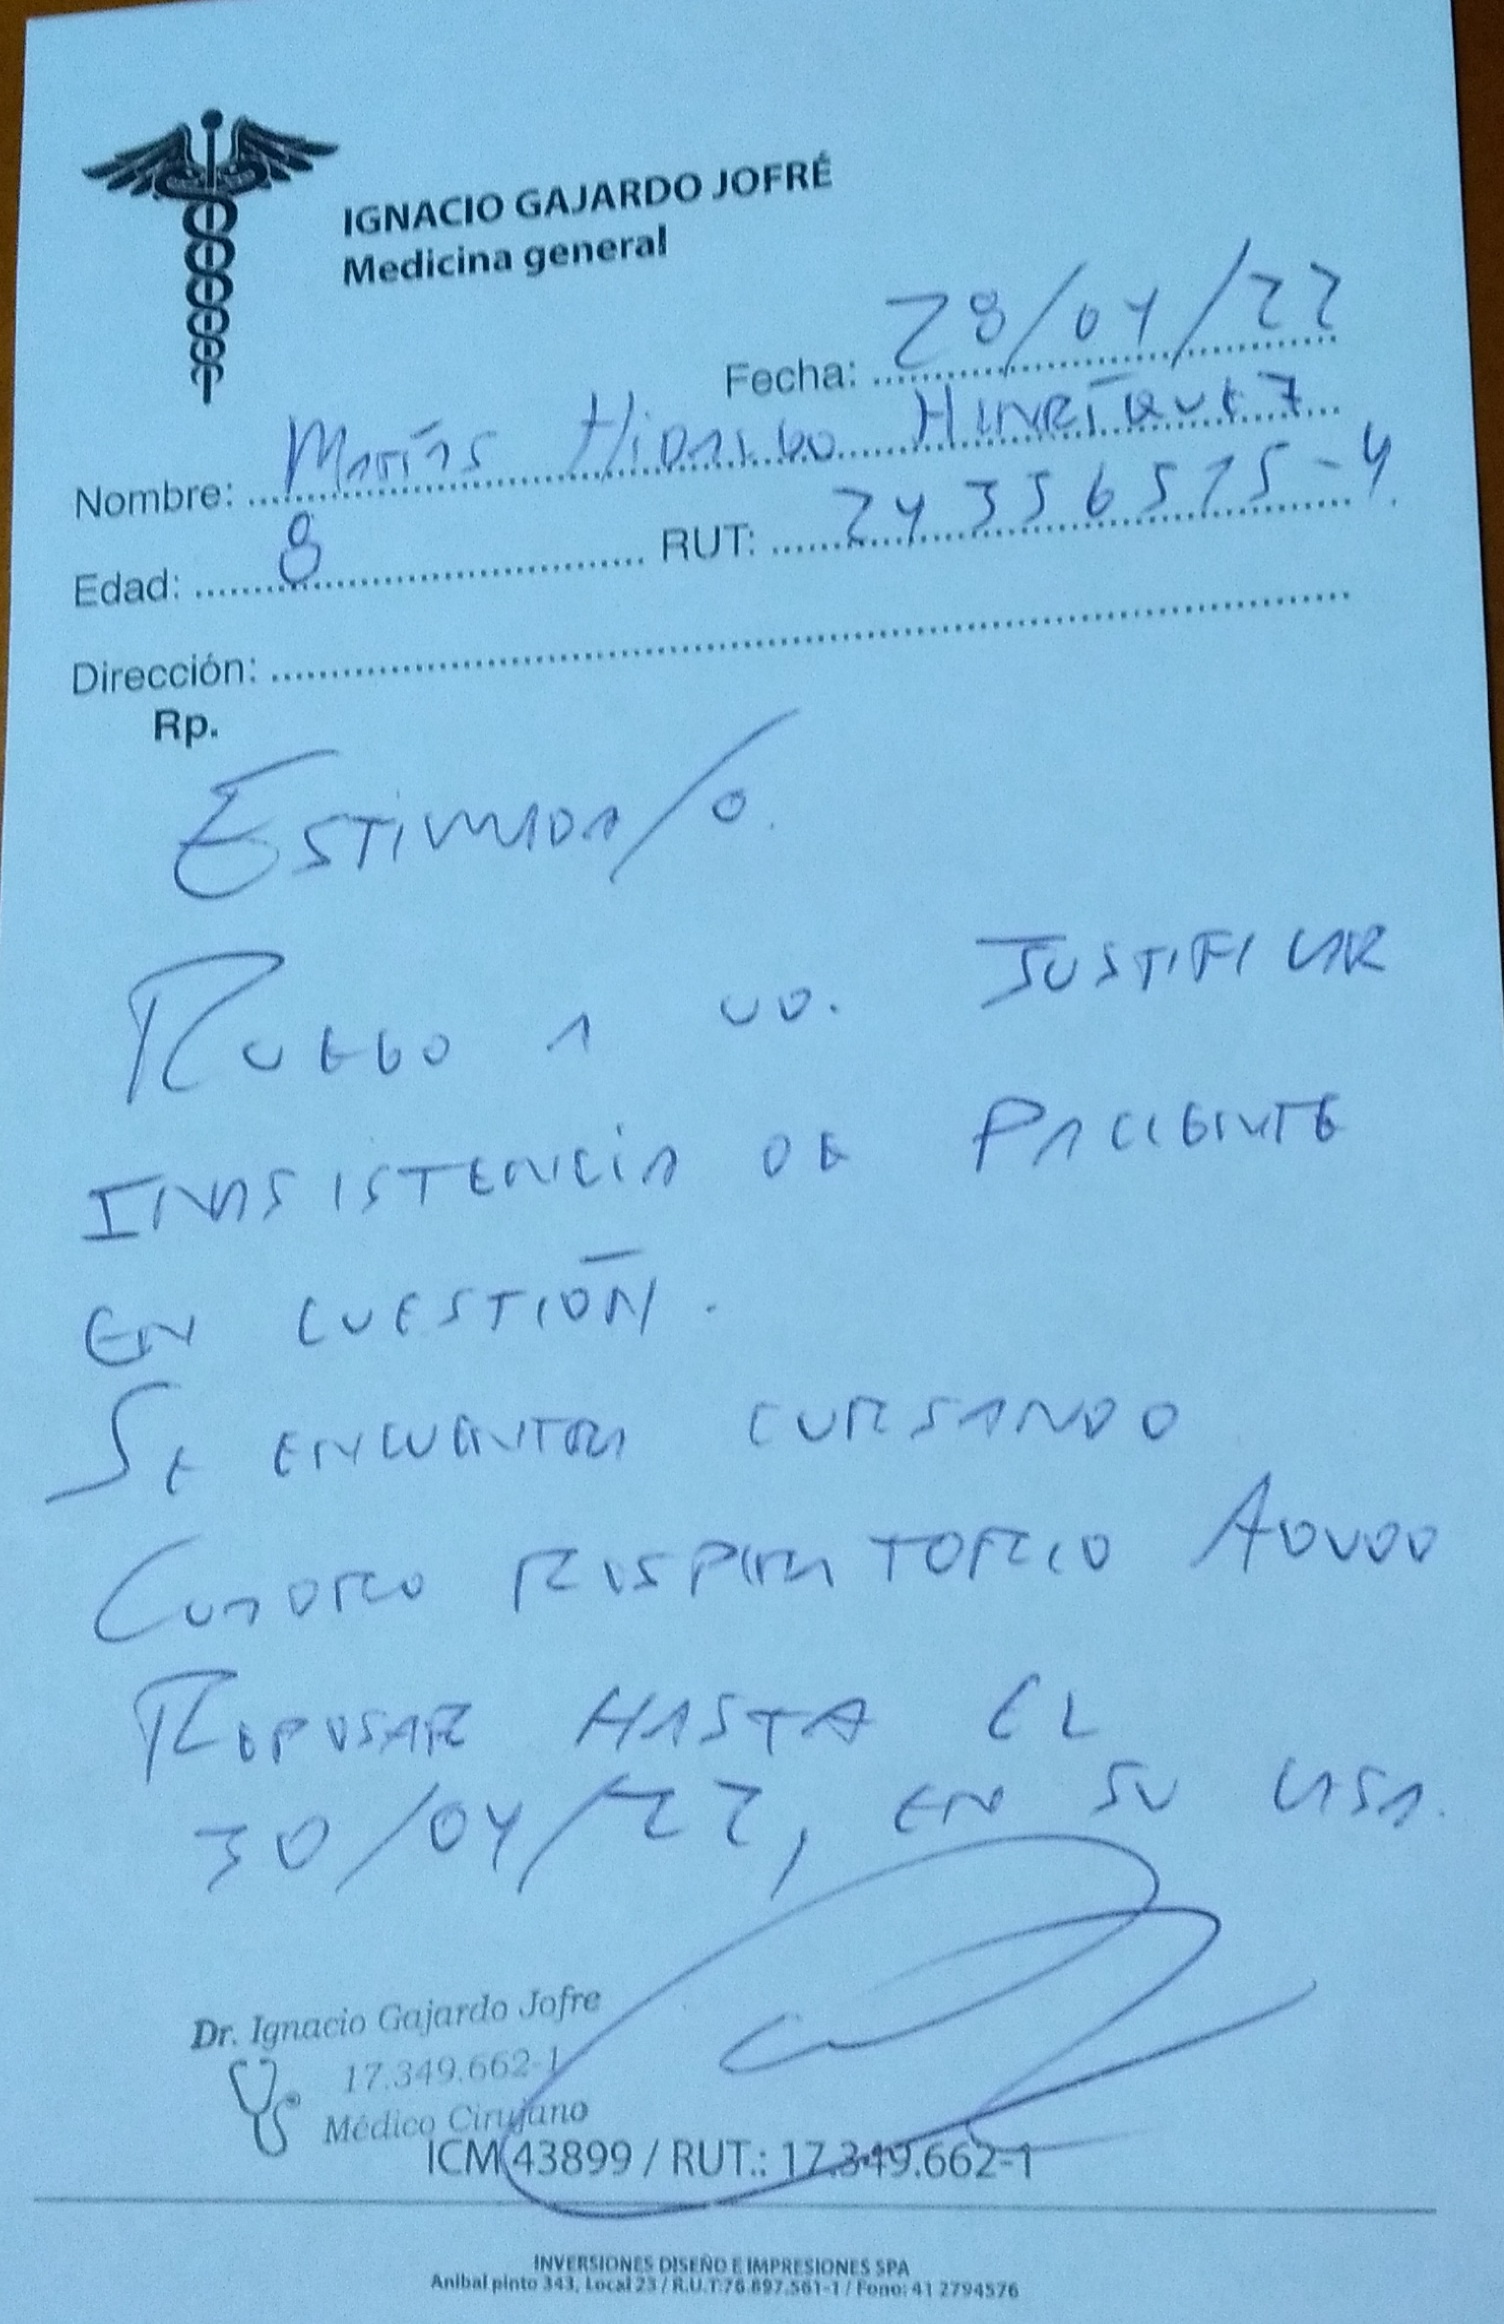 IGNACIO GAJARDO JOFRÉ
Medicina general
Fecha: 28/04/22
Nombre: Matías Hidalgo Henríquez
Edad: 8 RUT: 24356515-4
Dirección:
Rp.
Estimada/o.
Ruego a ud. Justificar
Inasistencia de paciente
en cuestión.
Se encuentra cursando
Cuadro respiratorio Agudo
Reposar hasta el
30/04/22, en su casa.
Dr. Ignacio Gajardo Jofre
17.349.662-1
Médico Cirujano
ICM 43899 / RUT.: 17.349.662-1
INVERSIONES DISEÑO E IMPRESIONES SPA
Anibal pinto 343, Local 23 / R.U.T:76.897.561-1 / Fono: 41 2794576